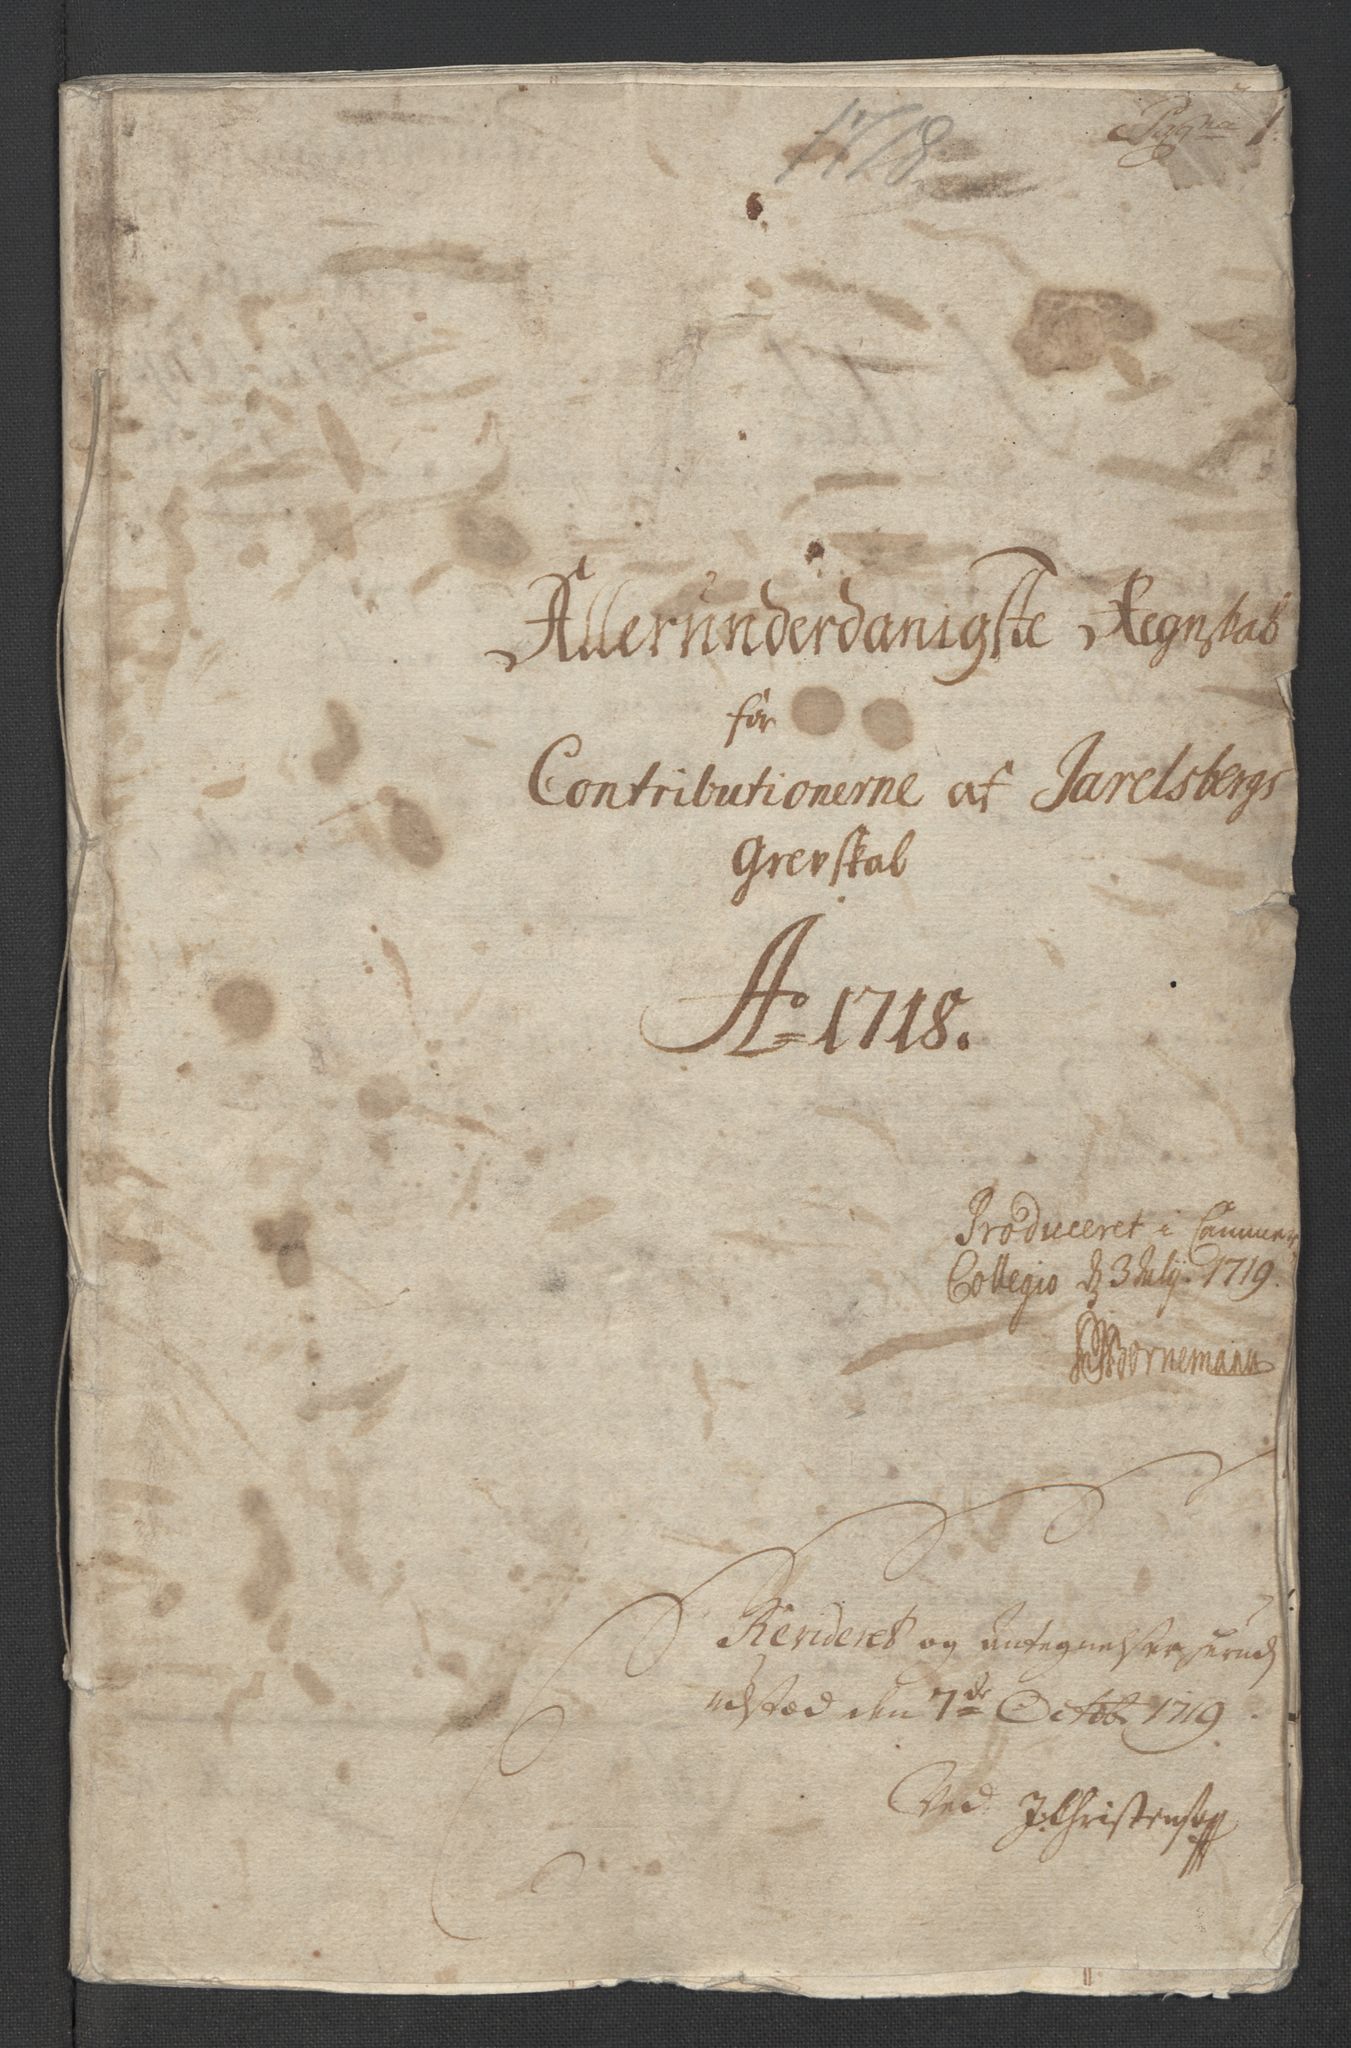 Pagina 1.
1718
Allerunderdanigste Regnskab
for
Contributionerne af Jarelsbergs
Grevskab
Ao 1718.
Produceret i Cammer
Collegio d 3 July. 1719.
Bornemann
Revideret og Antegnelser herved
udstæd den 7de Octob: 1719.
Ved J: Christensen